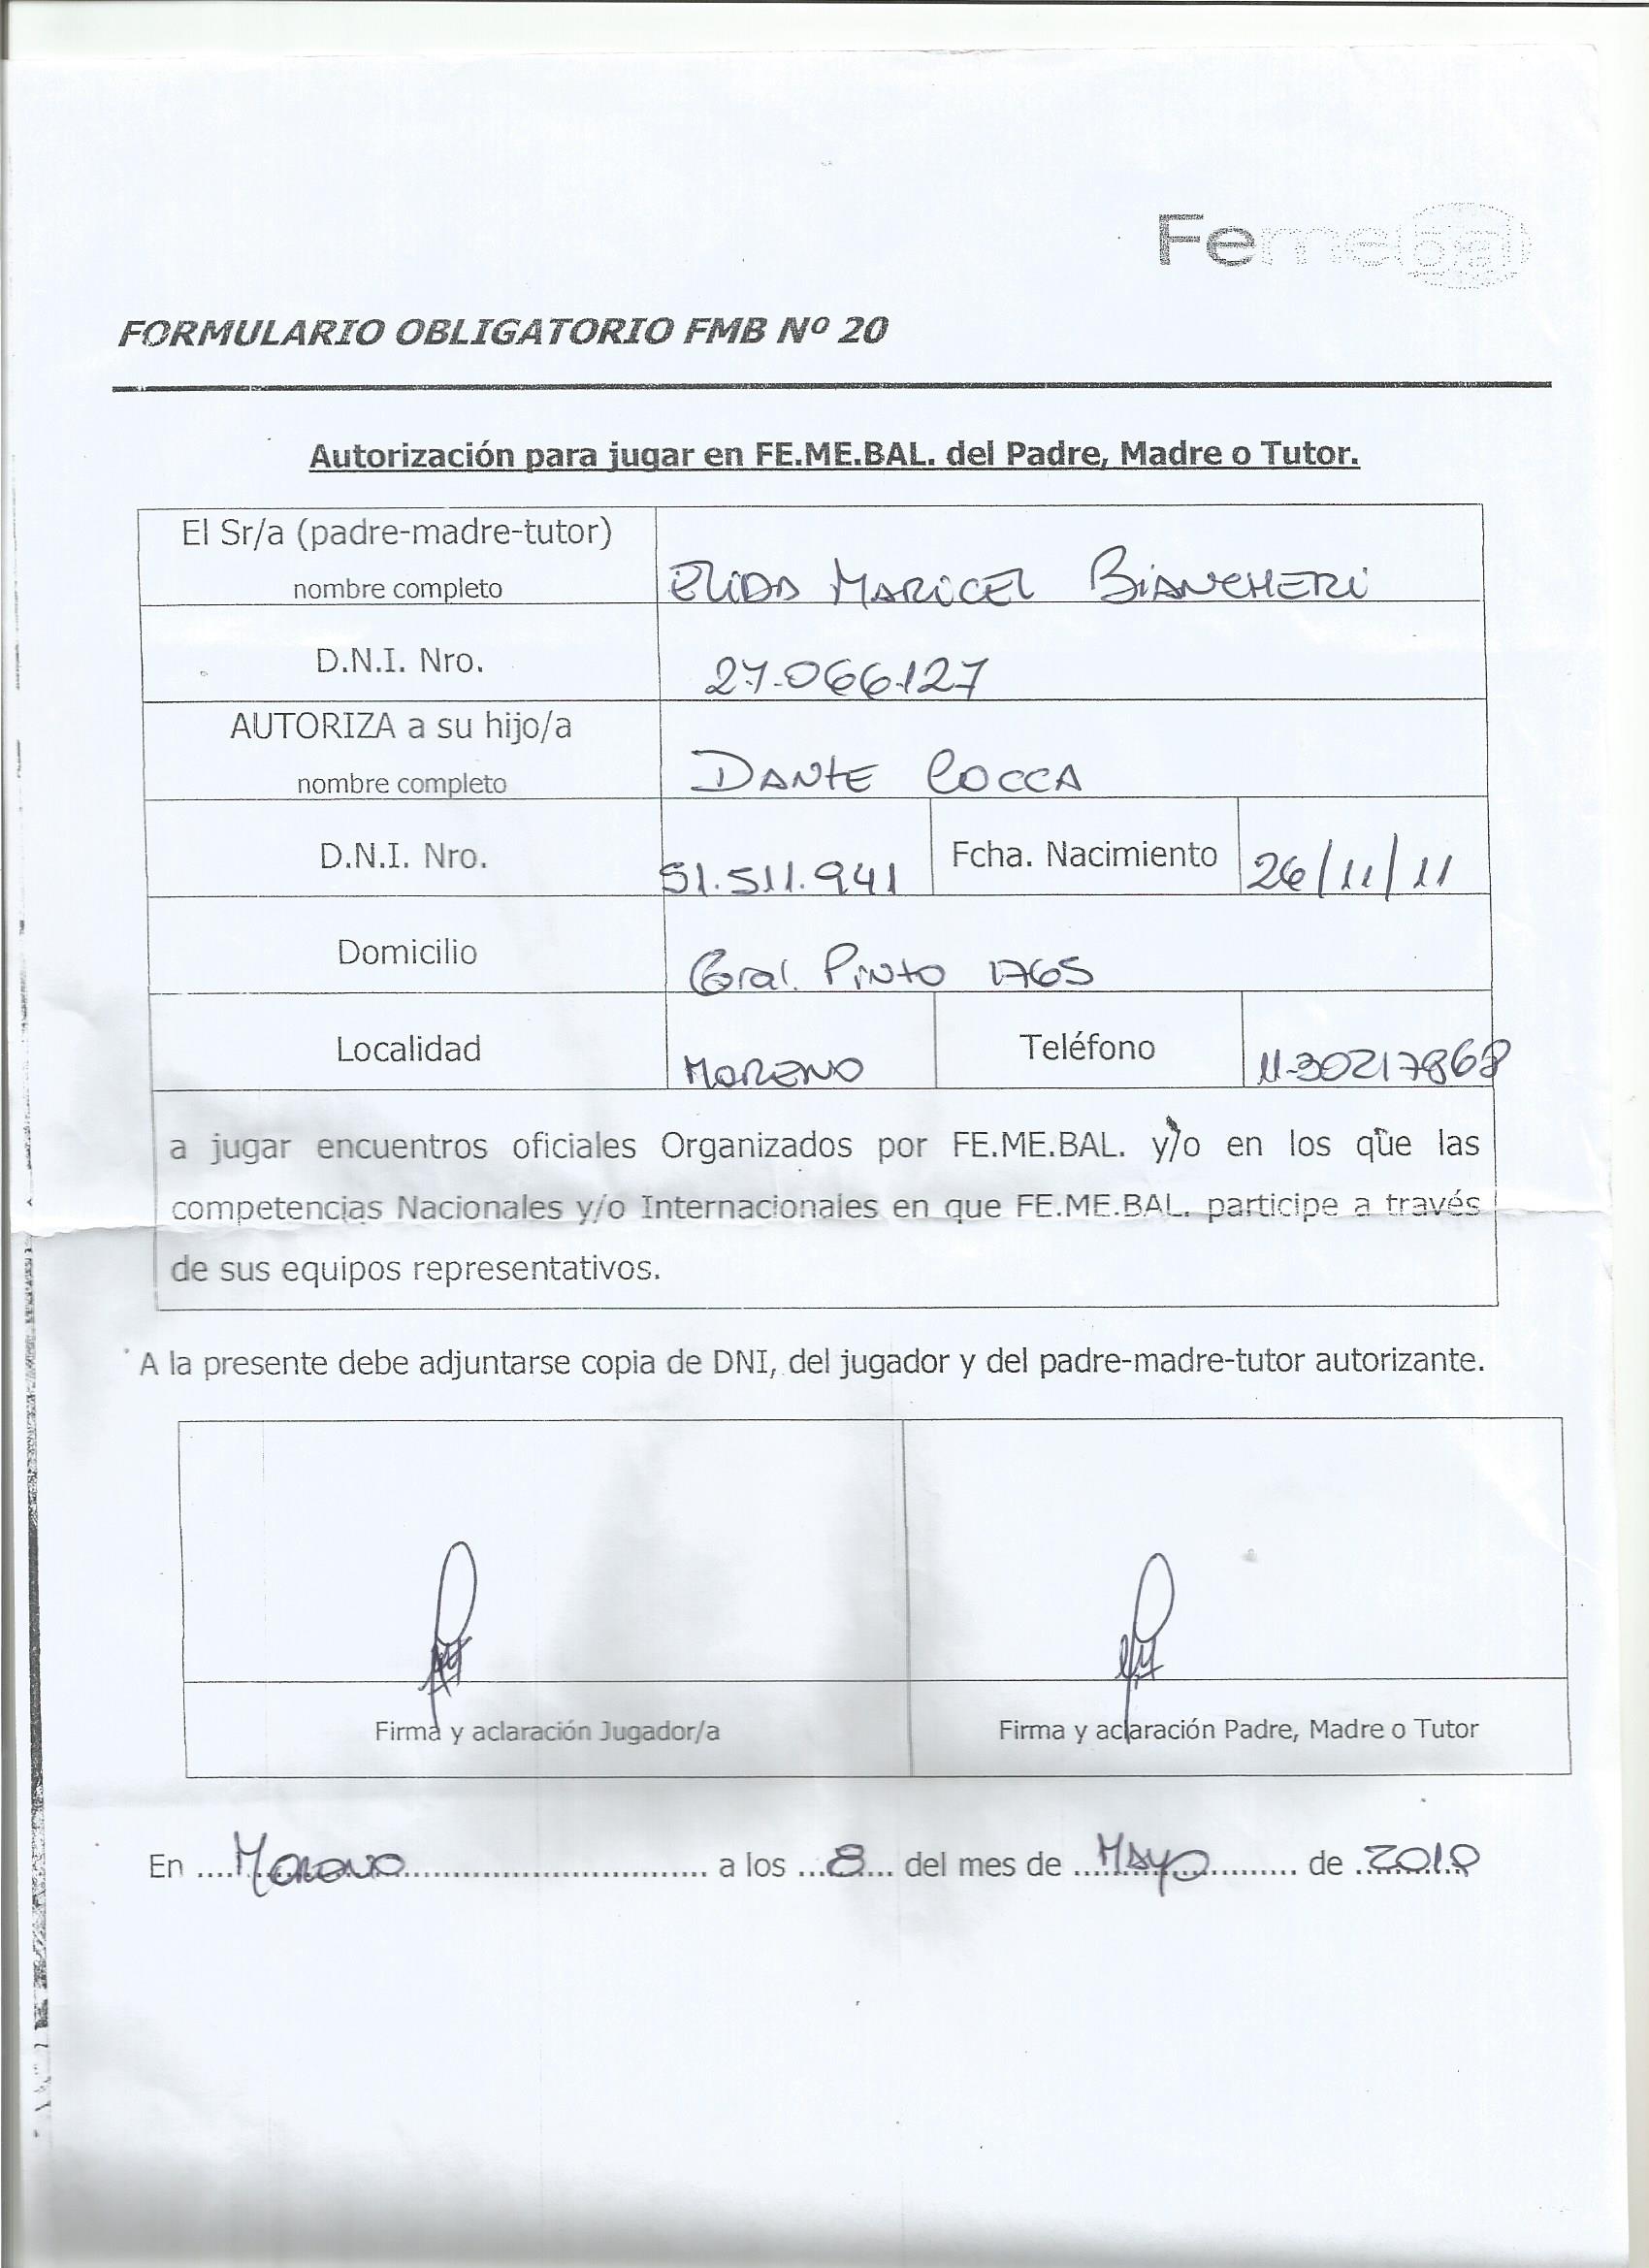 Femebal
FORMULARIO OBLIGATORIO FMB Nº 20
Autorización para jugar en FE.ME.BAL. del Padre, Madre o Tutor.
El Sr/a (padre-madre-tutor)
nombre completo
ELIDA MARICEL BIANCHERI
D.N.I. Nro.
27.066.127
AUTORIZA a su hijo/a
nombre completo
DANTE COCCA
D.N.I. Nro. 51.511.941 Fcha. Nacimiento 26/11/11
Domicilio Gral. Pinto 1765
Localidad MORENO Teléfono 11-30217868
a jugar encuentros oficiales Organizados por FE.ME.BAL. y/o en los que las
competencias Nacionales y/o Internacionales en que FE.ME.BAL. participe a través
de sus equipos representativos.
A la presente debe adjuntarse copia de DNI, del jugador y del padre-madre-tutor autorizante.
Firma y aclaración Jugador/a Firma y aclaración Padre, Madre o Tutor
En ....Moreno.................................. a los ...8.... del mes de ...Mayo.......... de ..2018